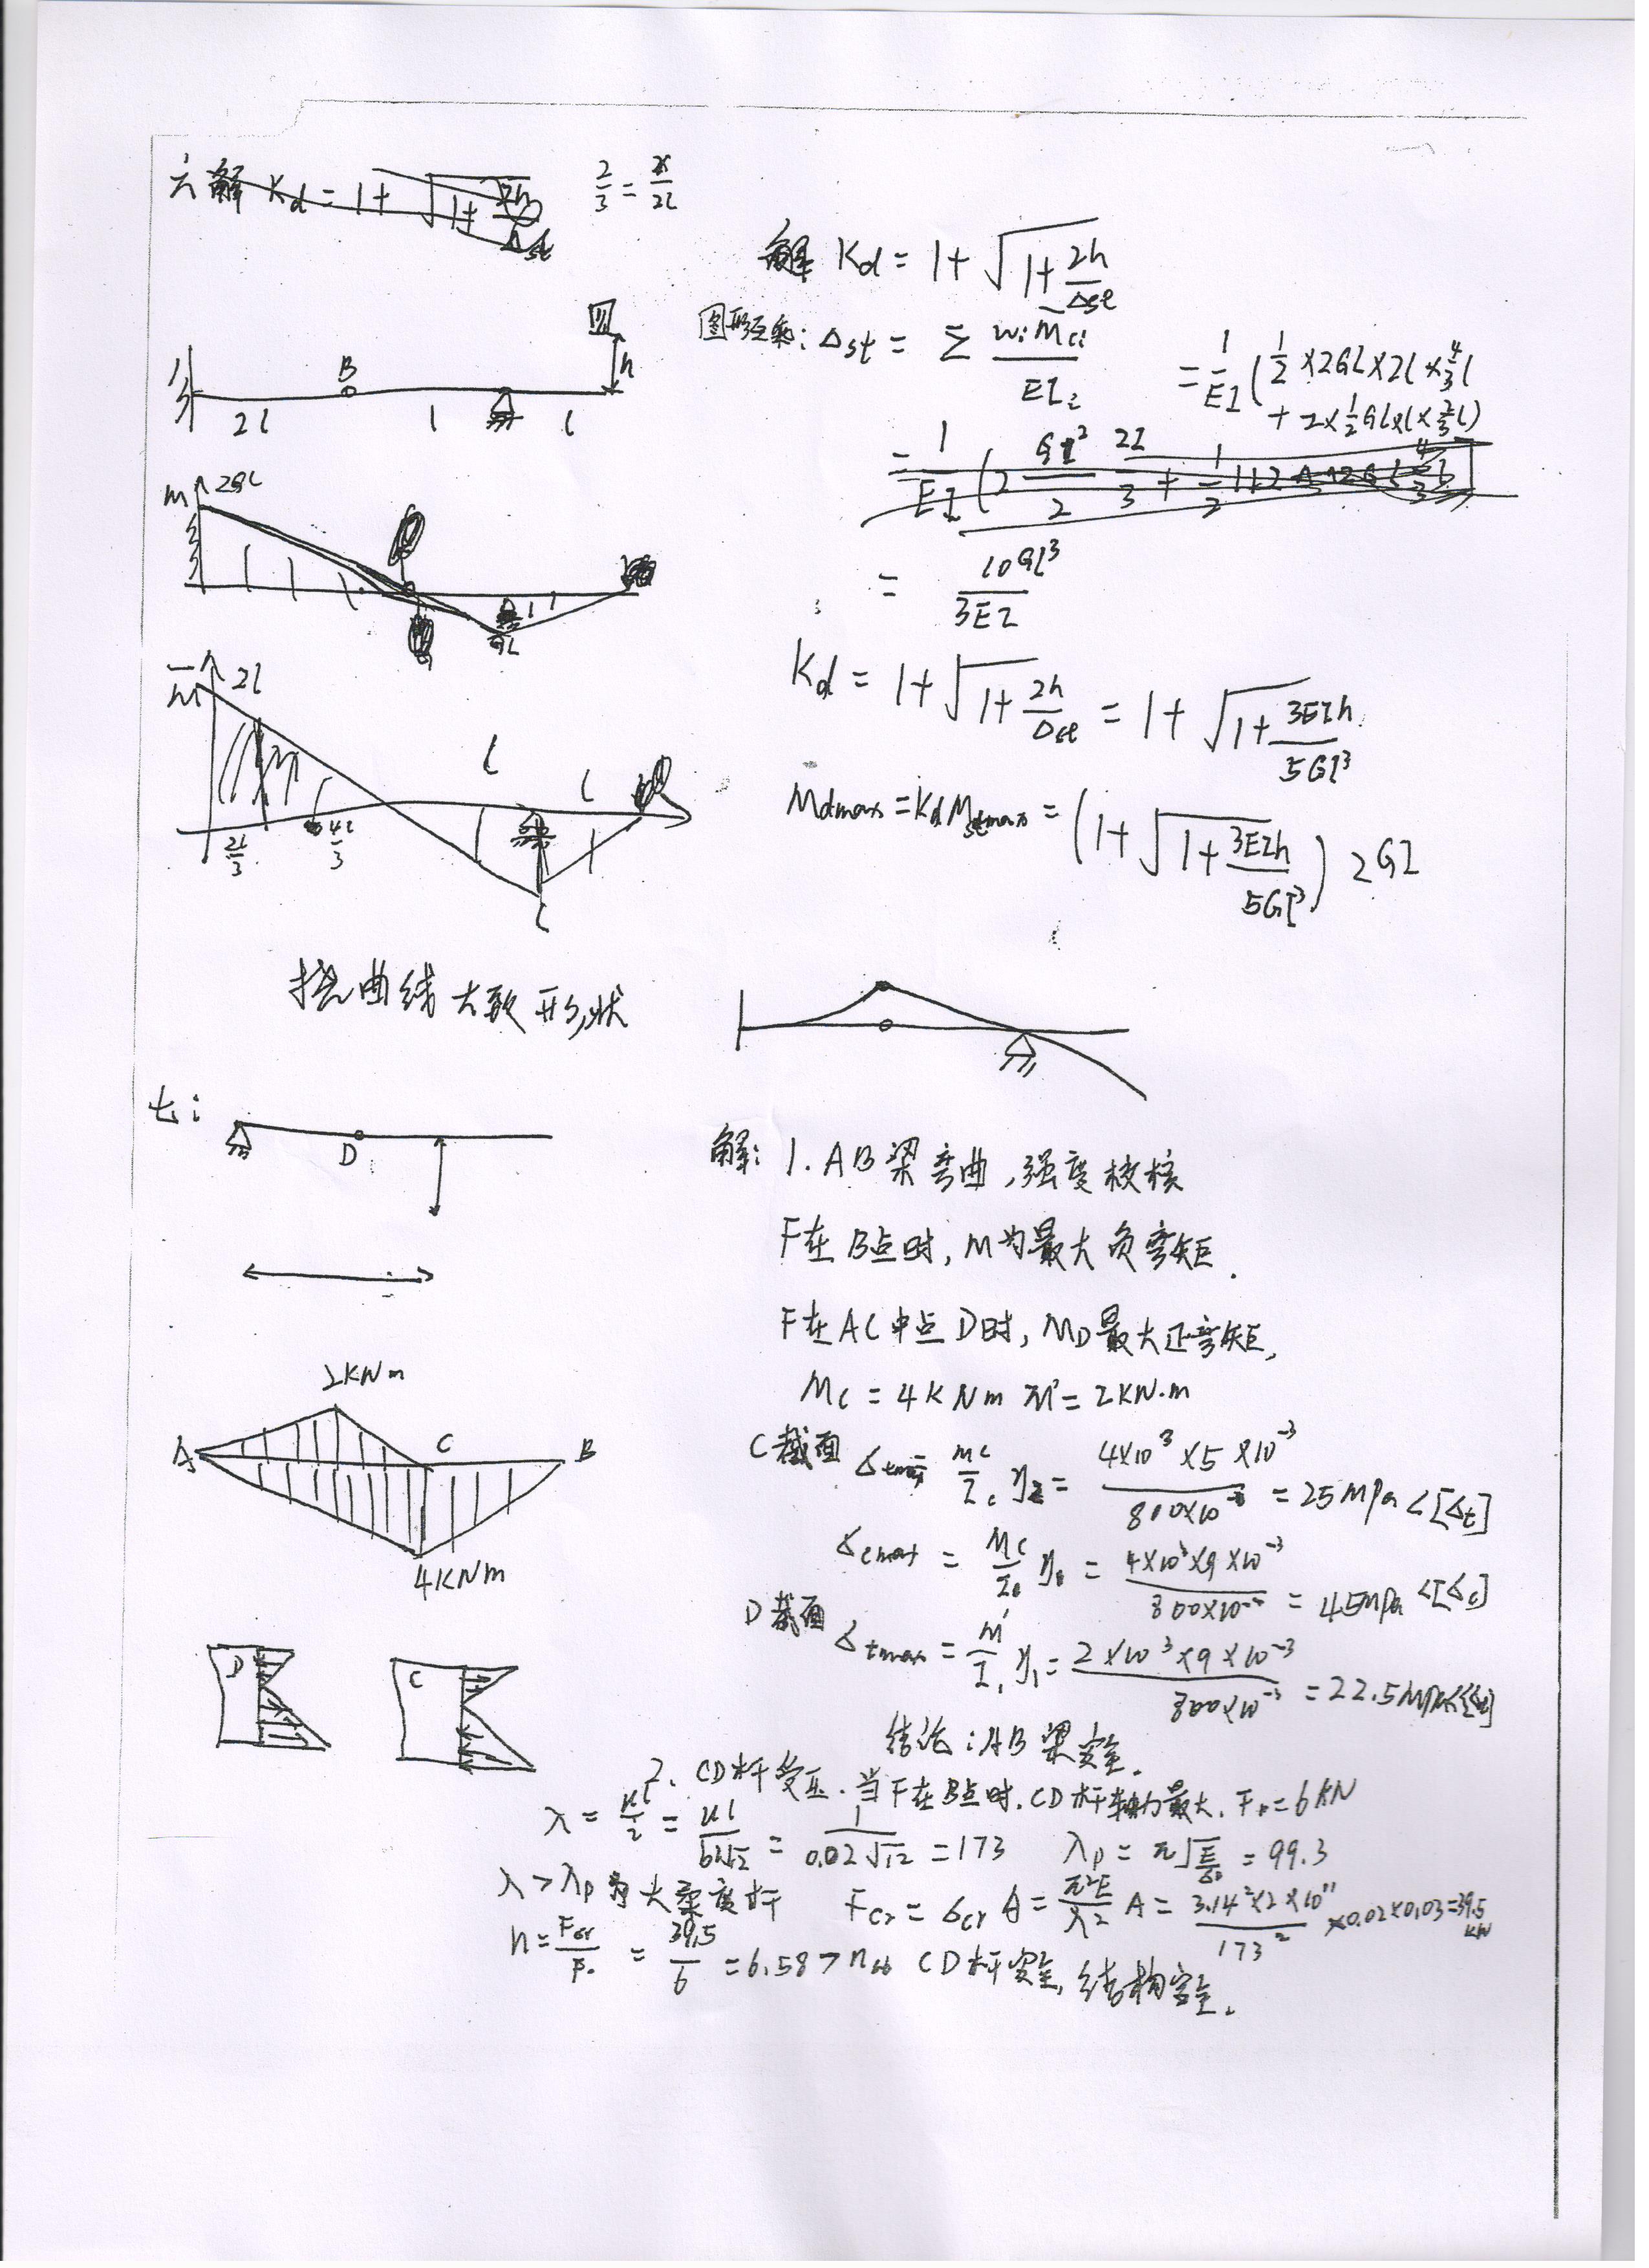 六 解 Kd = 1+√(1+2h/Δst)
2/3 = x/2l
解 Kd = 1+√(1+2h/Δst)
图形互乘: Δst = Σ ωi Mci / EIi = 1/EI (1/2 ×2Gl×2l×4/3 l
+ 2×1/2 Gl×l×2/3 l)
= 10Gl³/3EI
Kd = 1+√(1+2h/Δst) = 1+√(1+3EIh/5Gl³)
Mdmax = Kd Mstmax = (1+√(1+3EIh/5Gl³)) 2Gl
B
h
2l l l
M 2Gl
Gl
M̄ 2l
l l
2l/3 4l/3
l
挠曲线大致形状
七:
D
解: 1. AB梁弯曲,强度校核
F在B点时, M为最大负弯矩.
F在AC中点D时, MD最大正弯矩,
Mc = 4KNm M' = 2KN·m
2KNm
A C B
4KNm
C截面 σtmax = Mc/I y2 = 4×10³×5×10⁻³ / 800×10⁻⁸ = 25MPa < [σt]
σcmax = Mc/I y1 = 4×10³×9×10⁻³ / 800×10 = 45MPa < [σc]
D截面 σtmax = M'/I y1 = 2×10³×9×10⁻³ / 800×10⁻³ = 22.5MPa < [σt]
D C
结论: AB梁安全.
2. CD杆受压. 当F在B点时. CD杆轴力最大. = 6KN
λ = μl/i = = 1/0.02√12 = 173 λp = π√(E/σp) = 99.3
λ > λp 为大柔度杆 Fcr = σcr A = π²E/λ² A = 3.14²×2×10¹¹/173² ×0.02×0.03 = 39.5KN
n = Fcr/ = 39.5/6 = 6.58 > nst CD杆安全, 结构安全.